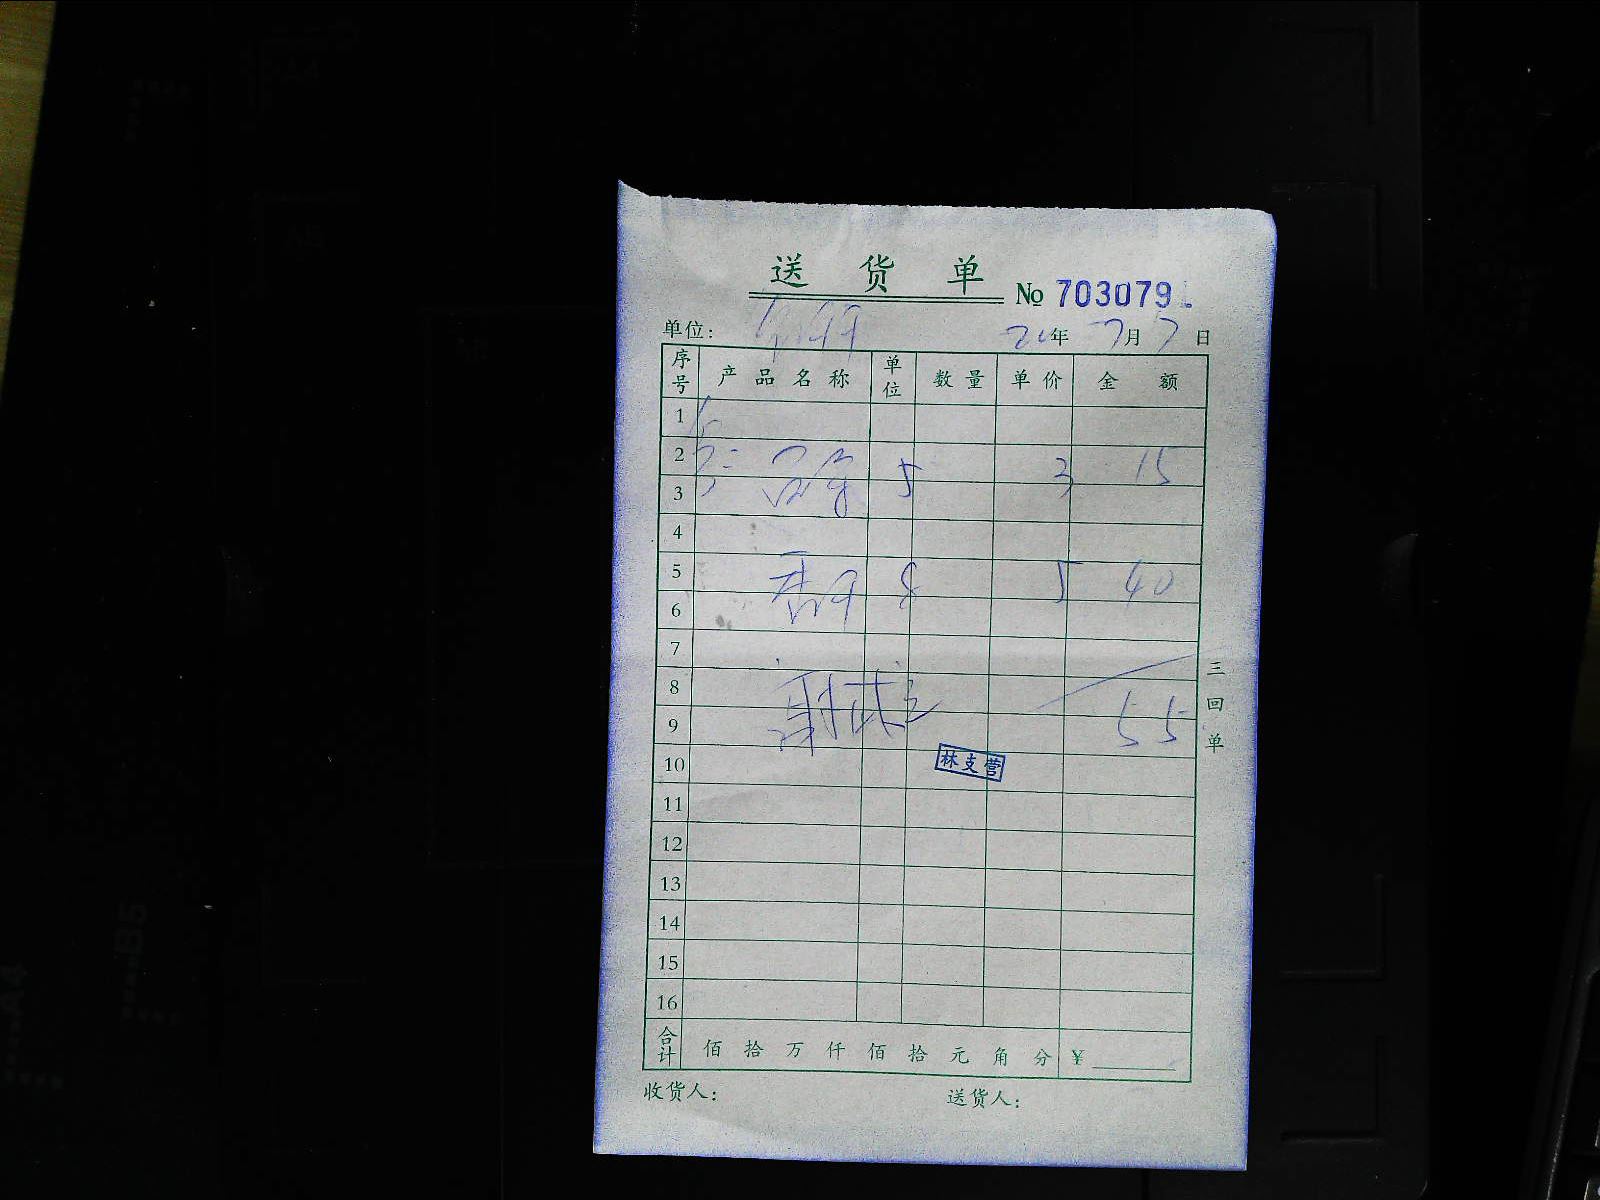 送 货 单
No 703079
单位:
年 7月 7日
序号 产品名称 单位 数量 单价 金额
1
2 5 3 15
3
4
5 8 5 40
6
7
8
9 55
林支营
10
11
12
13
14
15
16
合计 佰 拾 万 仟 佰 拾 元 角 分 ¥
收货人: 送货人:
三回单